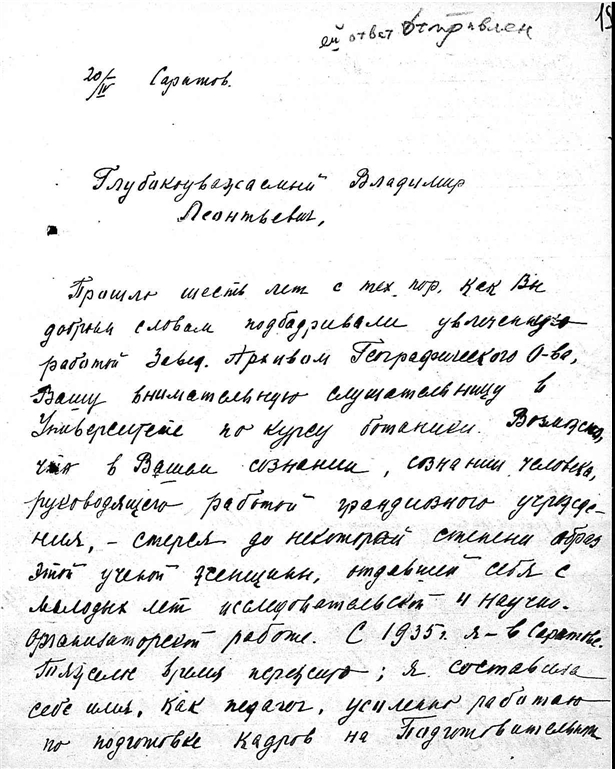 15
ей ответ отправлен
20/IV Саратов.
Глубокоуважаемый Владимир
Леонтьевич,
Прошло шесть лет с тех пор, как Вы
добрым словом подбадривали увлеченную
работой Завед. Архивом Географического О-ва,
Вашу внимательную слушательницу в
Университете по курсу ботаники. Возможно,
что в Вашем сознании, сознании человека,
руководящего работой грандиозного учрежде-
ния, – стерся до некоторой степени образ
этой ученой женщины, отдавшей себя с
молодых лет исследовательской и научно-
организаторской работе. С 1935 г. я – в Саратове.
Тяжелое время пережито; я составила
себе имя, как педагог, усиленно работаю
по подготовке кадров на Подготовительных